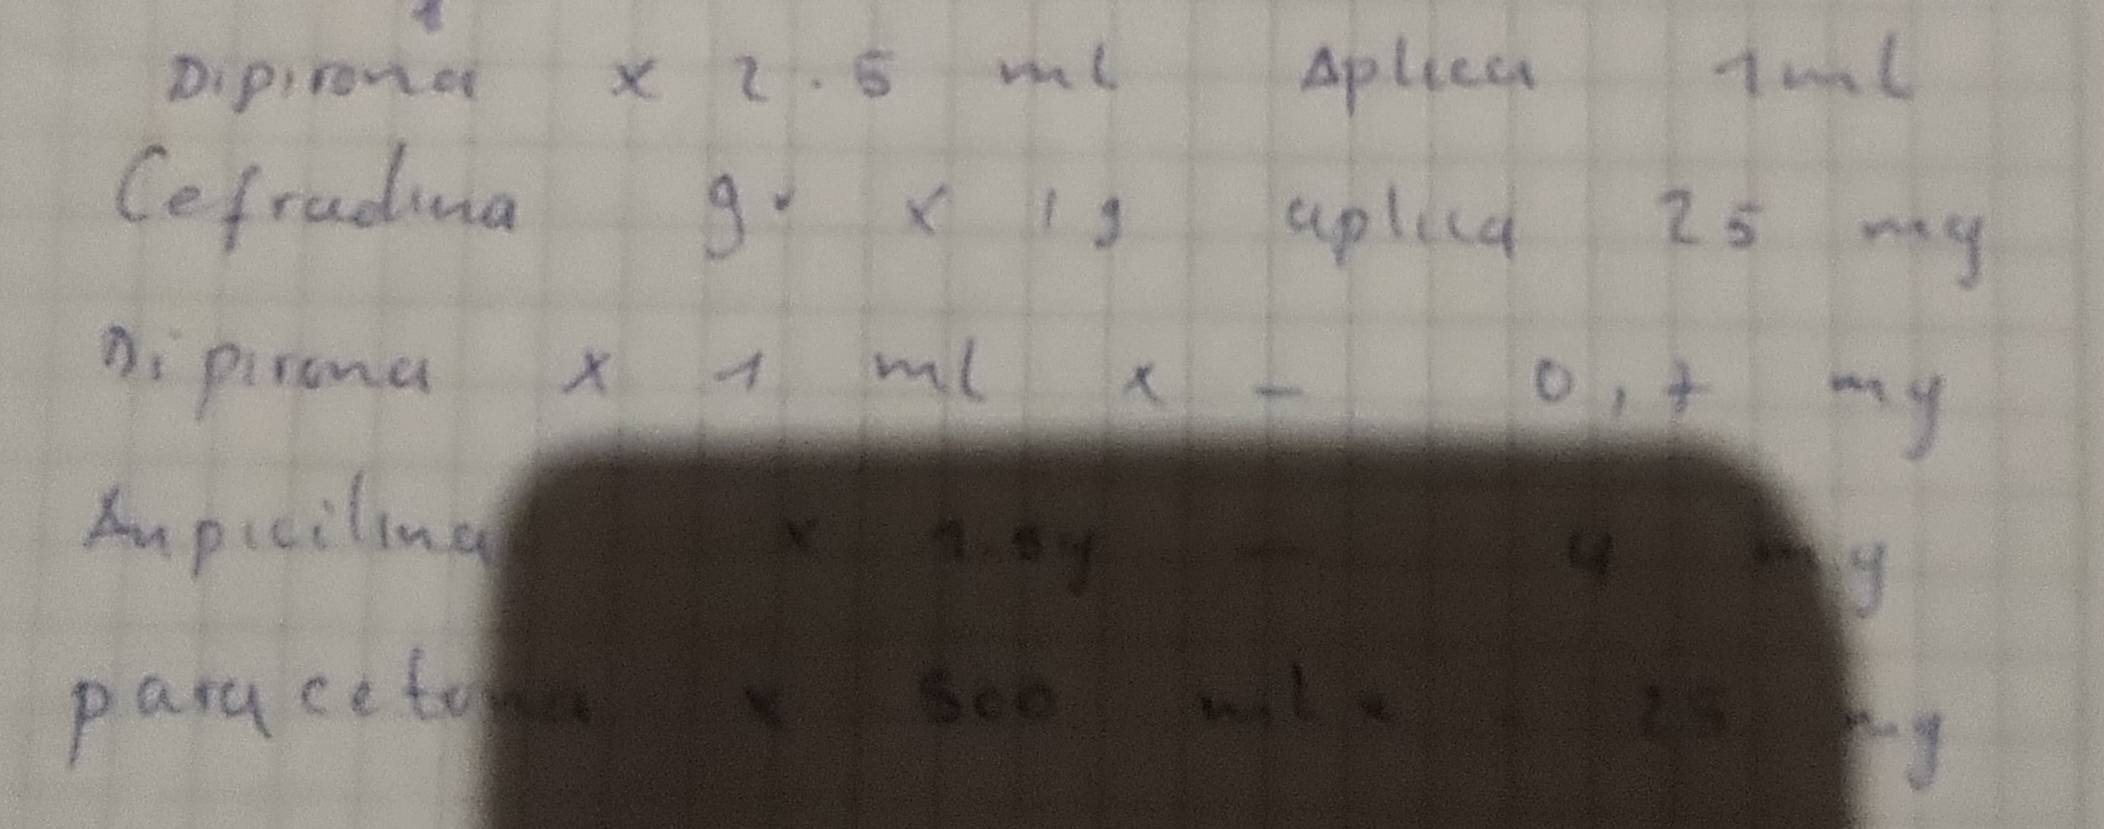 Dipirona x 2.5 ml Aplica 1ml
Cefradina gr x 1g aplica 25 mg
Dipirona x 1 ml x - 0,7 mg
Anpicilina x 1.5g - 4 mg
x 500 ml x - 25 mg